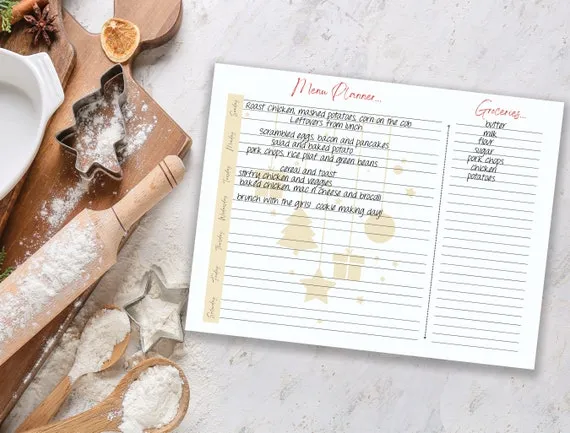 Menu Planner...
Groceries...
Sunday
Roast chicken, mashed potatoes, corn on the cob
Leftovers from lunch
Monday
scrambled eggs, bacon and pancakes
Salad and baked potato
pork chops, rice pilaf and green beans
Tuesday
cereal and toast
stirfry chicken and veggies
baked chicken, mac n' cheese and brocolli
Wednesday
brunch with the girls! cookie making day!
Thursday
Friday
Saturday
butter
milk
flour
sugar
pork chops
chicken
potatoes